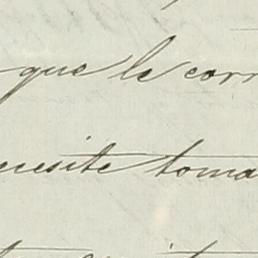 que le corr
ecesite toma